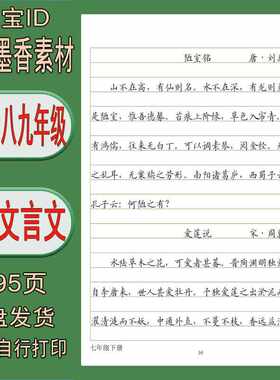 宝ID
墨香素材
八九年级
文言文
95页
盘发货
自行打印
陋室铭 唐·刘
山不在高，有仙则名。水不在深，有龙则
是陋室，惟吾德馨。苔痕上阶绿，草色入帘青。
有鸿儒，往来无白丁。可以调素琴，阅金经。
之乱耳，无案牍之劳形。南阳诸葛庐，西蜀子
孔子云：何陋之有？
爱莲说 宋·周
水陆草木之花，可爱者甚蕃。晋陶渊明独
自李唐来，世人甚爱牡丹。予独爱莲之出淤泥
濯清涟而不妖，中通外直，不蔓不枝，香远益
七年级下册